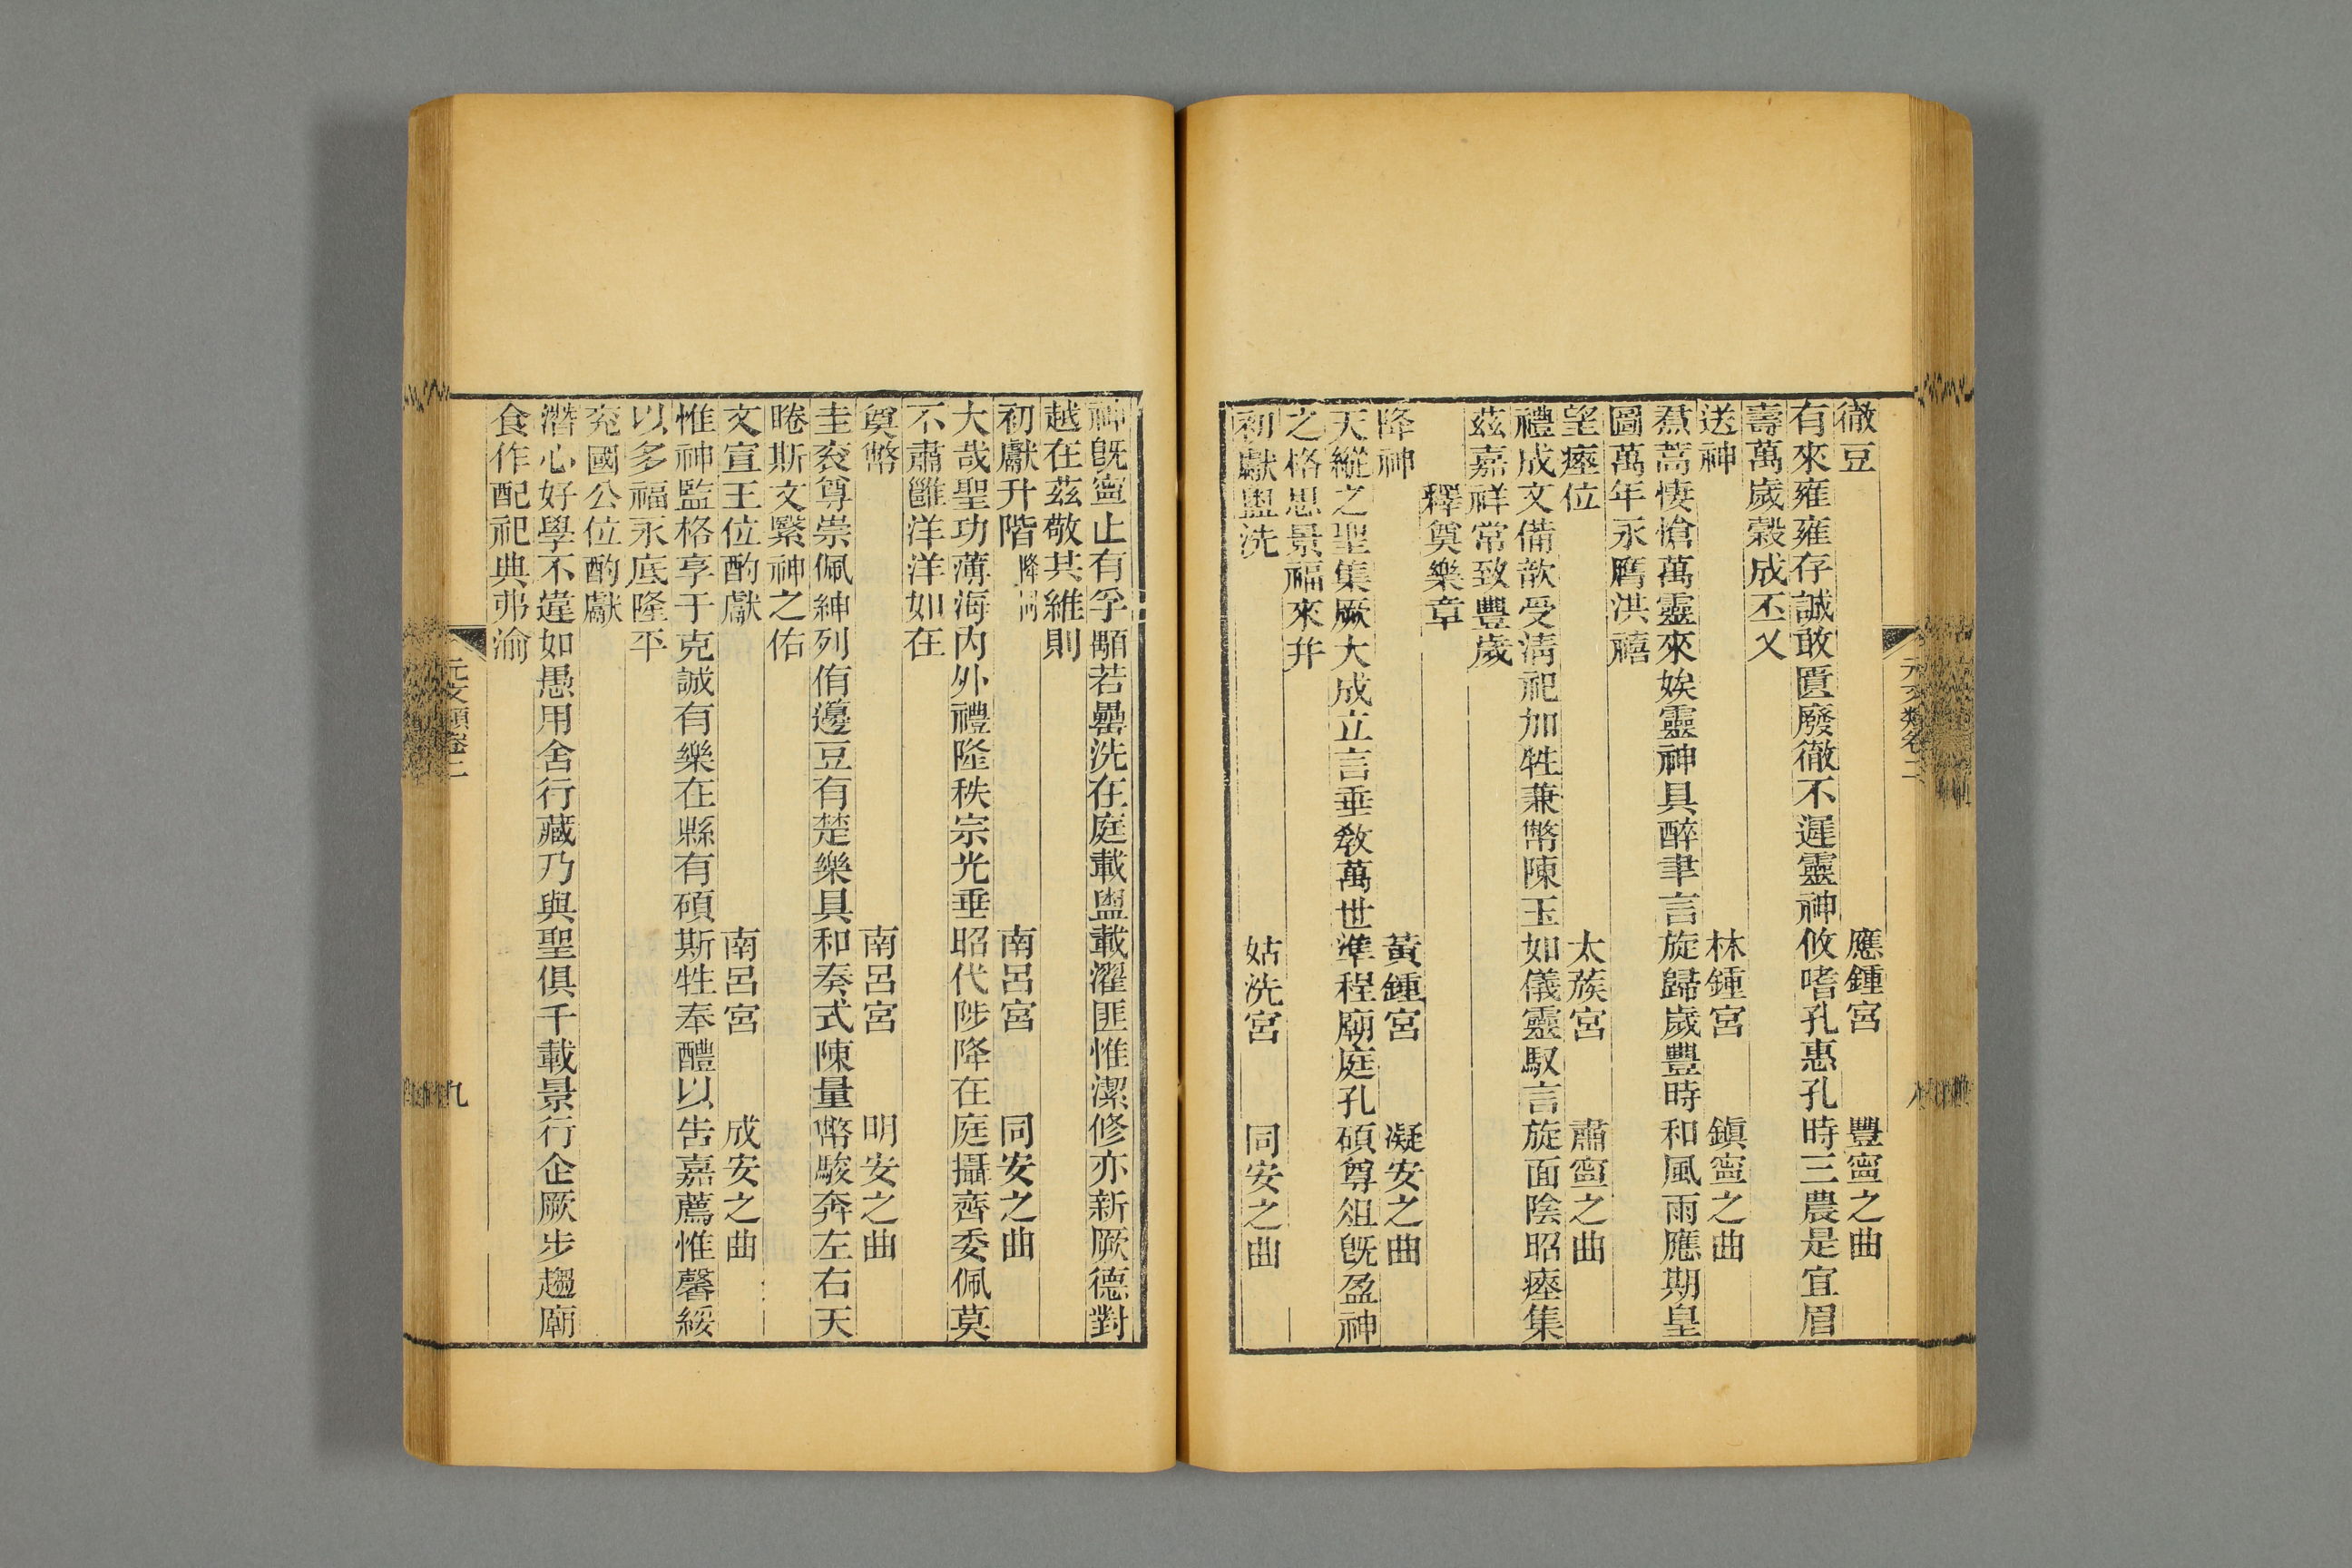 徹豆　應鍾宮　豐寧之曲
有來雍雍存誠敢匱廢徹不遲靈神攸嗜孔惠孔時三農是宜眉
壽萬歲穀成丕乂
送神　林鍾宮　鎮寧之曲
焄蒿悽愴萬靈來娭靈神具醉聿言旋歸歲豐時和風雨應期皇
圖萬年永膺洪禧
望瘞位　太蔟宮　肅寧之曲
禮成文備歆受淸祀加牲兼幣陳玉如儀靈馭言旋面陰昭瘞集
茲嘉祥常致豐歲
釋奠樂章
降神　黃鍾宮　凝安之曲
天縱之聖集厥大成立言垂敎萬世準程廟庭孔碩尊俎旣盈神
之格思景福來幷
初獻盥洗　姑洗宮　同安之曲
元文類卷二
神旣寧止有孚顒若罍洗在庭載盥載濯匪惟潔修亦新厥德對
越在茲敬共維則
初獻升階降同　南呂宮　同安之曲
大哉聖功薄海內外禮隆秩宗光垂昭代陟降在庭攝齊委佩莫
不肅雝洋洋如在
奠幣　南呂宮　明安之曲
圭衮尊崇佩紳列侑籩豆有楚樂具和奏式陳量幣駿奔左右天
睠斯文繄神之佑
文宣王位酌獻　南呂宮　成安之曲
惟神監格享于克誠有樂在縣有碩斯牲奉醴以告嘉薦惟馨綏
以多福永底隆平
兖國公位酌獻
潛心好學不違如愚用舍行藏乃與聖俱千載景行企厥步趨廟
食作配祀典弗渝
元文類卷二
九